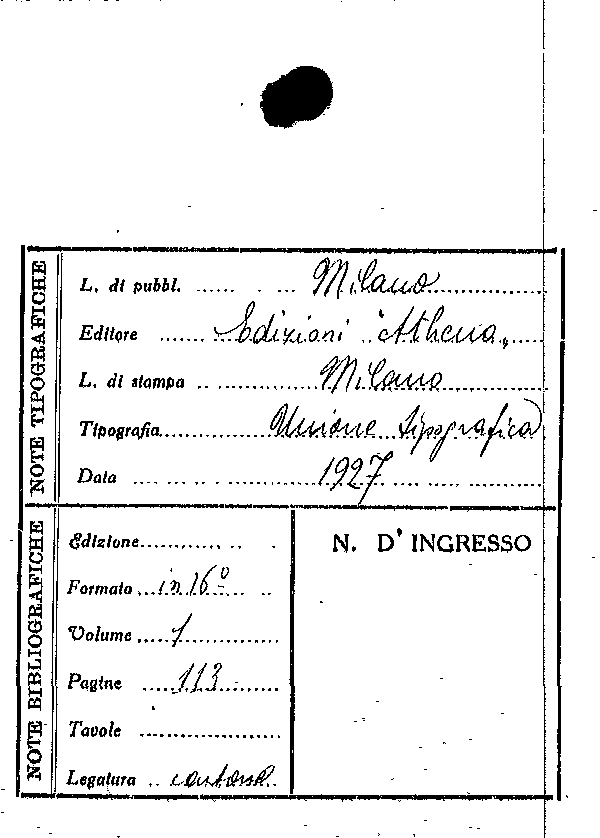 NOTE TIPOGRAFICHE
L. di pubbl. Milano
Editore Edizioni "Athena„
L. di stampa Milano
Tipografia Unione tipografica
Data 1927
NOTE BIBLIOGRAFICHE
Edizione
Formato in 16º
Volume 1
Pagine 113
Tavole
Legatura
N. D'INGRESSO